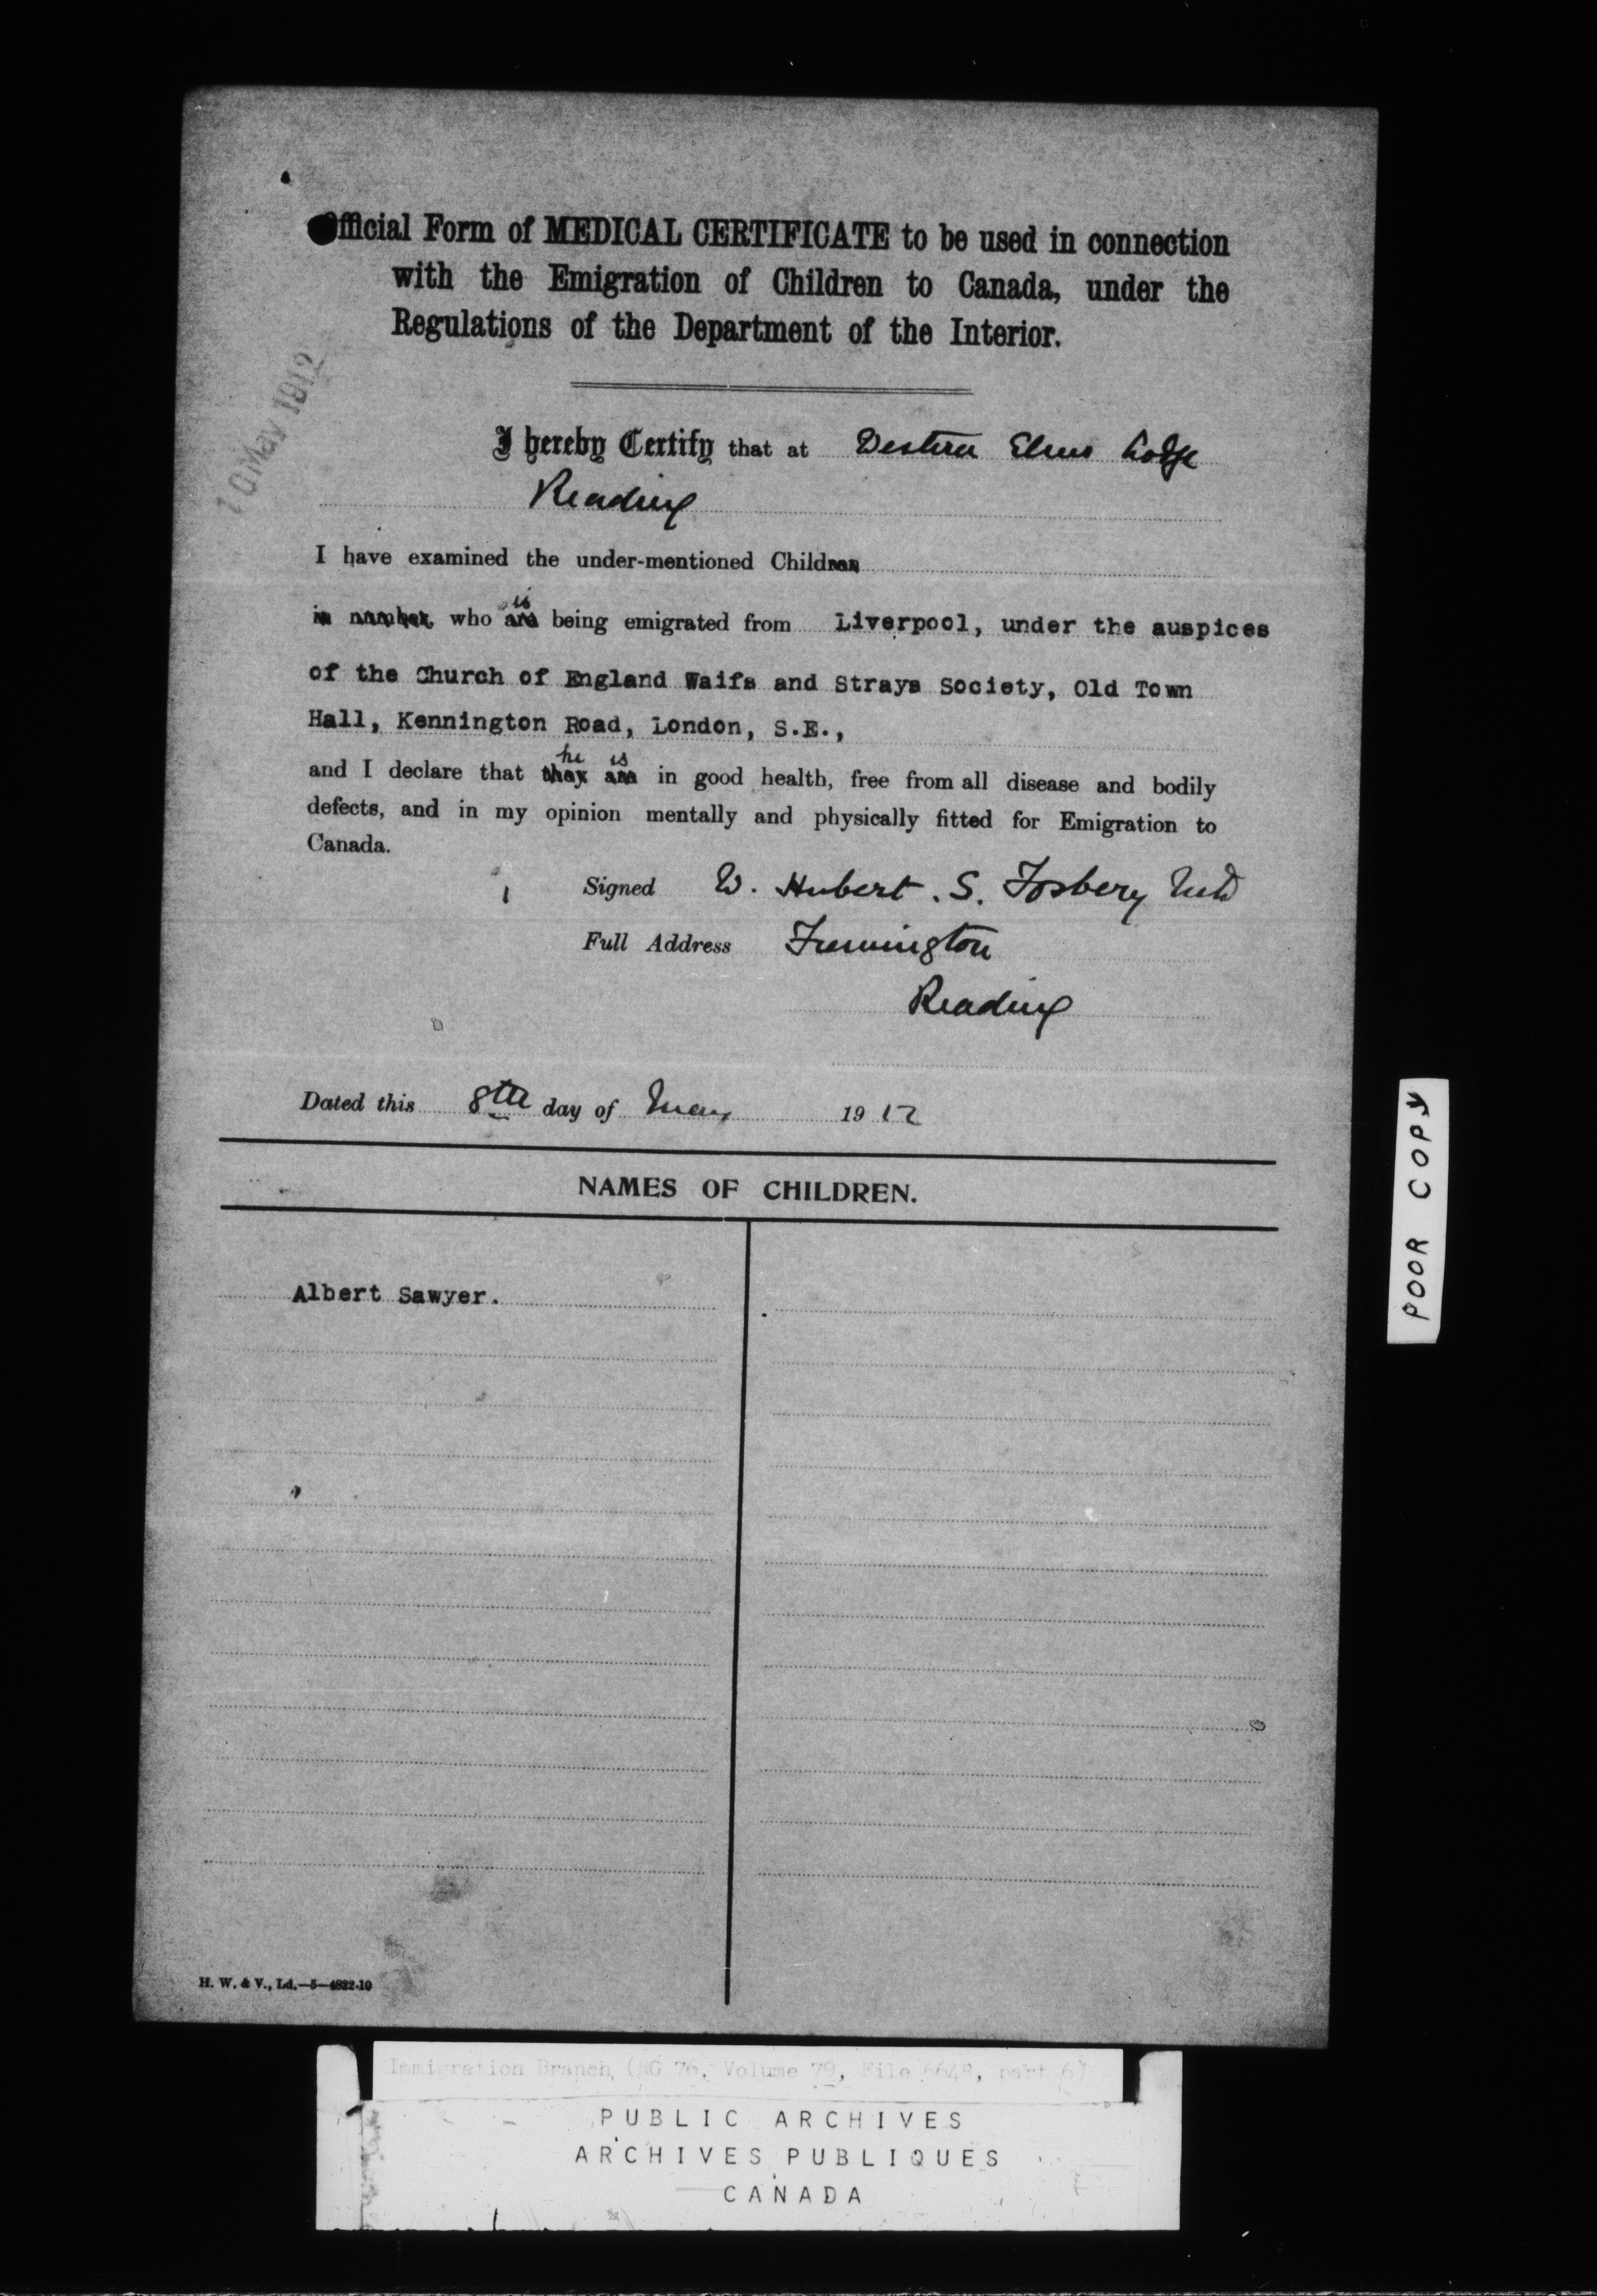 Official Form of MEDICAL CERTIFICATE to be used in connection
with the Emigration of Children to Canada, under the
Regulations of the Department of the Interior.
10 May 1912
I hereby Certify that at Western Elms Lodge
Reading
I have examined the under-mentioned Children
is
in number, who are being emigrated from Liverpool, under the auspices
of the Church of England Waifs and Strays Society, Old Town
Hall, Kennington Road, London, S.E.,
he is
and I declare that they are in good health, free from all disease and bodily
defects, and in my opinion mentally and physically fitted for Emigration to
Canada.
Signed W. Hubert. S. Fosbery MD
Full Address
Reading
Dated this 8th day of May 1912
NAMES OF CHILDREN.
Albert Sawyer.
H. W. & V., Ld.—5—4822-10
POOR COPY
Immigration Branch, (RG 76, Volume 79, File 6648, part 6)
PUBLIC ARCHIVES
ARCHIVES PUBLIQUES
CANADA